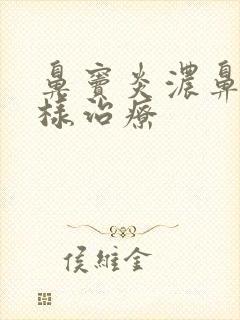 鼻窦炎濃鼻
様治療
侯維金